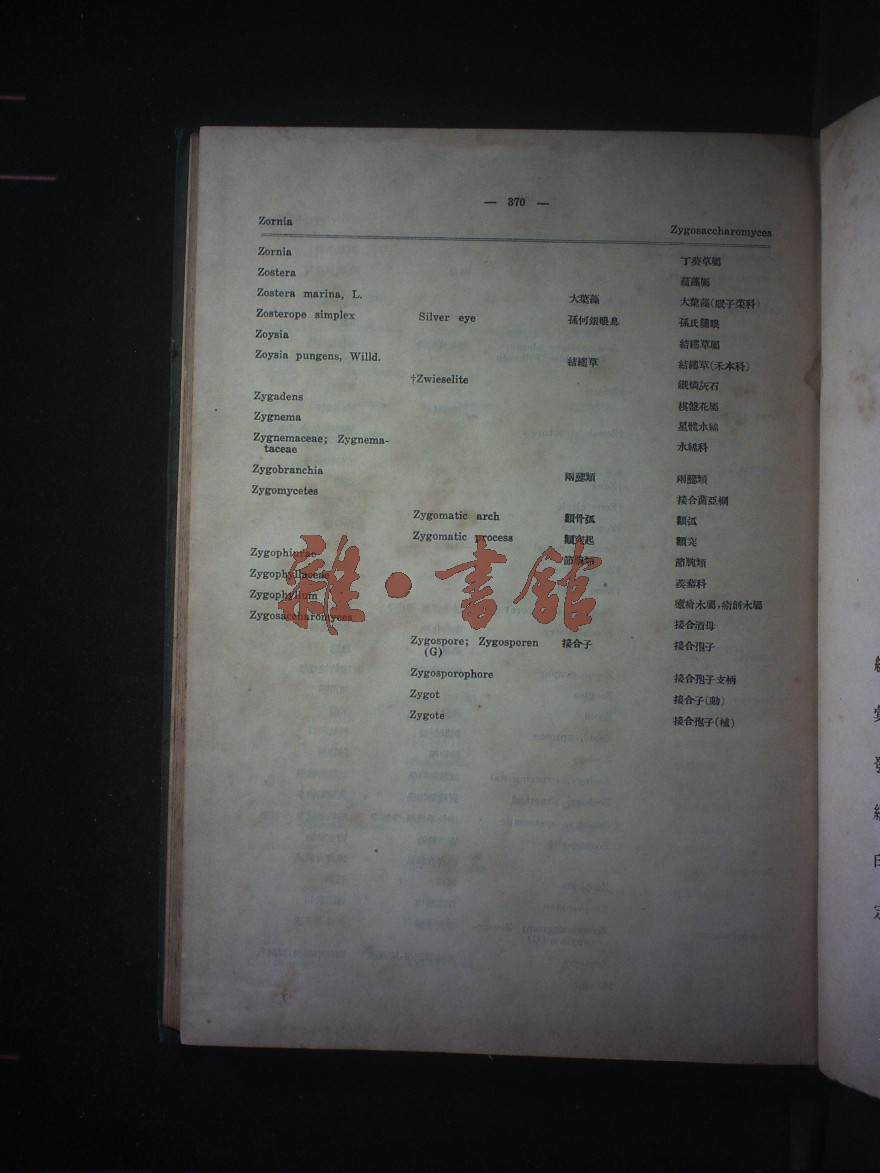 — 370 —
Zornia Zygosaccharomyces
Zornia 丁葵草屬
Zostera 藻屬
Zostera marina, L. 大葉藻 大葉藻(眼子菜科)
Zosterope simplex Silver eye 孫何銀眼鳥 孫氏繡眼
Zoysia 結縷草屬
Zoysia pungens, Willd. 結縷草 結縷草(禾本科)
†Zwieselite 燐灰石
Zygadens 棋盤花屬
Zygnema 星髓水綿
Zygnemaceae; Zygnema-
taceae 水綿科
Zygobranchia 兩鰓類 兩鰓類
Zygomycetes 接合菌亞綱
Zygomatic arch 顴骨弧 顴弧
Zygomatic process 顴突起 顴突
Zygophiurae 節腕類 節腕類
Zygophyllaceae 蒺藜科
Zygophyllum 癒瘡木屬,瘡創木屬
Zygosaccharomyces 接合酒母
Zygospore; Zygosporen 接合子 接合孢子
(G)
Zygosporophore 接合孢子支柄
Zygot 接合子(動)
Zygote 接合孢子(植)
雜·書館